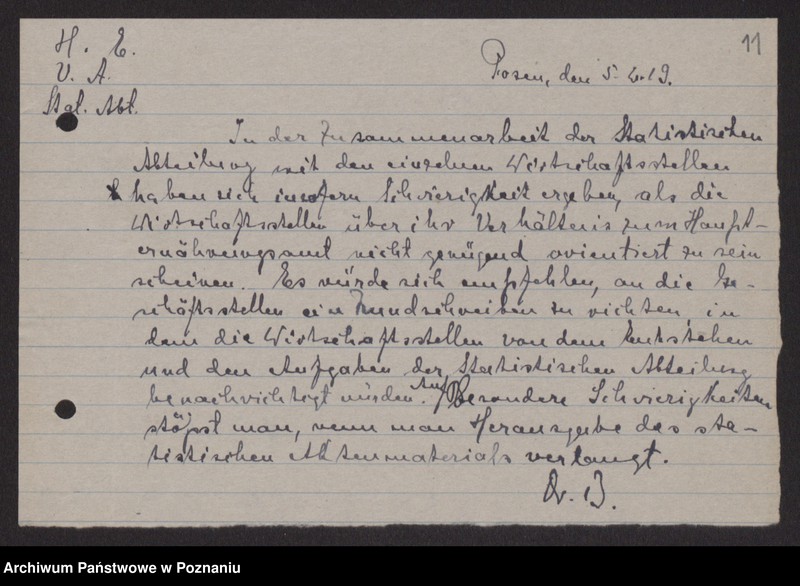 11
H. E.
V. A.
Stat. Abt.
Posen, den 5.4.19.
In der Zusammenarbeit der Statistischen
Abteilung mit den einzelnen Wirtschaftsstellen
haben sich insofern Schwierigkeit ergeben, als die
Wirtschaftsstellen über ihr Verhältnis zum Haupt-
ernährungsamt nicht genügend orientiert zu sein
scheinen. Es würde sich empfehlen, an die Ge-
schäftsstellen ein Rundschreiben zu richten, in
dem die Wirtschaftsstellen von dem Entstehen
und den Aufgaben der Statistischen Abteilung
benachrichtigt würden. Auf Besondere Schwierigkeiten
stößt man, wenn man Herausgabe des sta-
tistischen Aktenmaterials verlangt.
Dr. B.
Archiwum Państwowe w Poznaniu